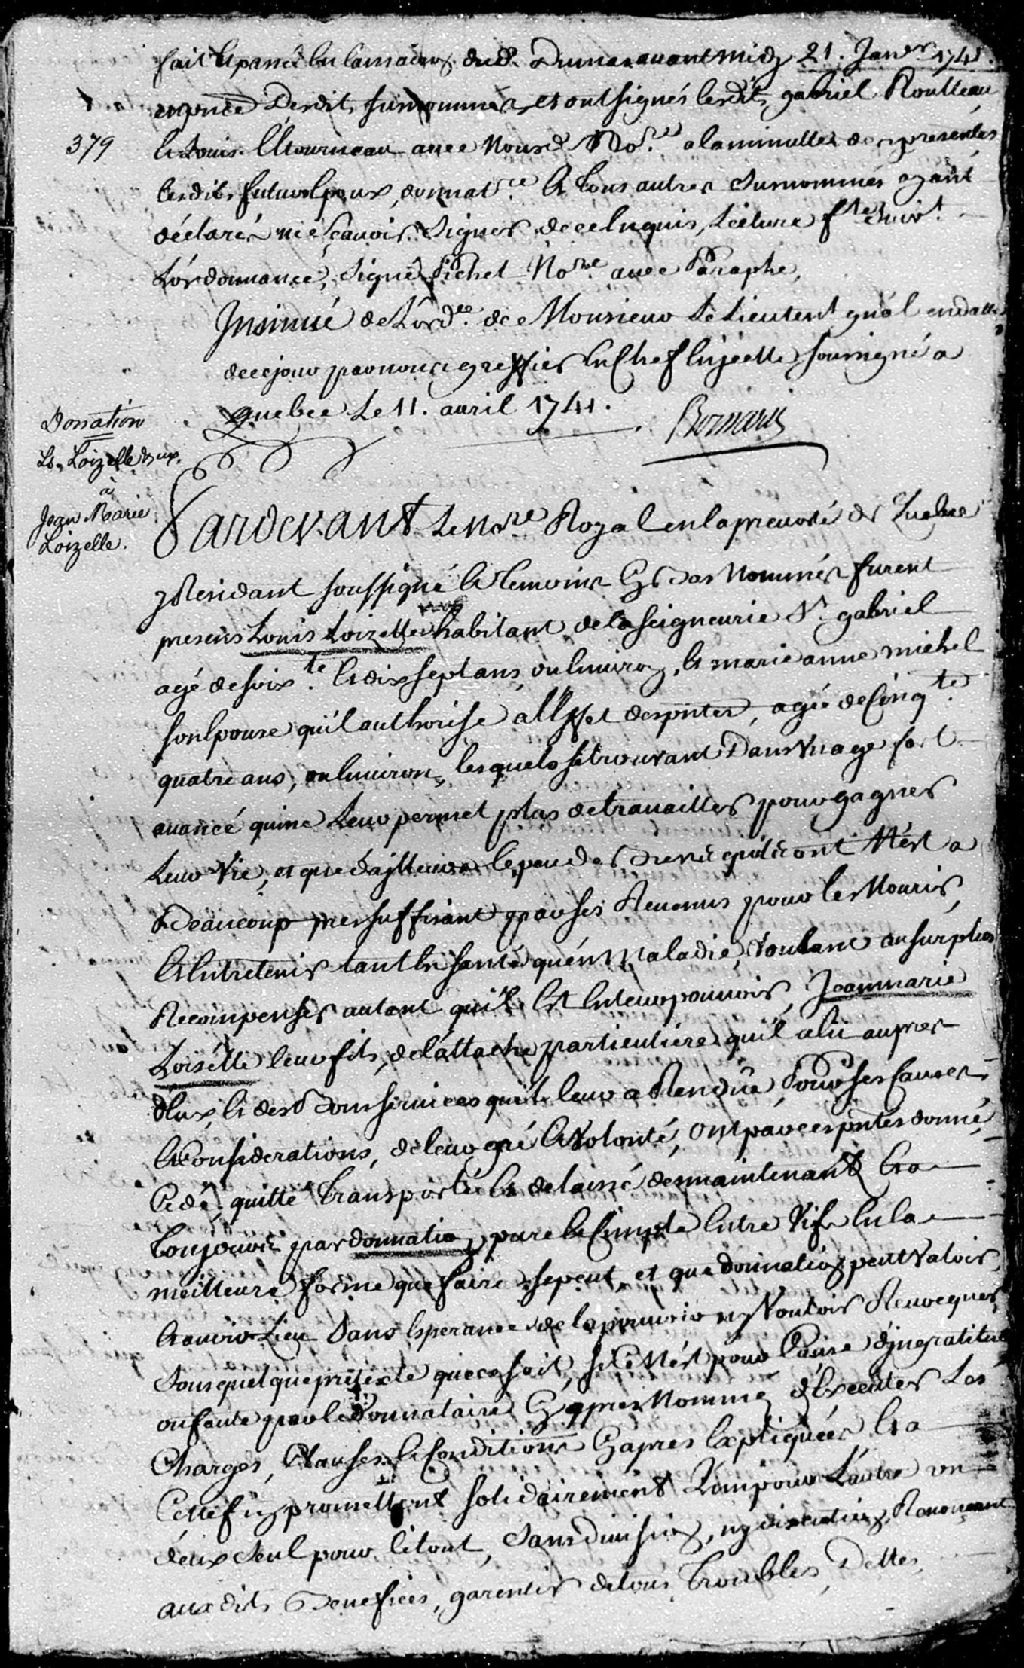 fait et passé en la maison dud. Dumas avant midy 21. Janer 1741.
379
en pnce Desdits surnommés et ont signés lesdits gabriel Routteau
et Louis Létourneau avec Nousd. Nore. a la minutte des presentes
lesdits futurs Epoux, donnatre. et tous autres surnommés ayant
déclarés ne sçavoir signer, de ce Enquis, Lecture fte. suivt.
L'ordonnance, Signé Pichet Nore. avec Paraphe,
Insinué de L'orde. de Monsieur Le Lieutent. gnál en datte
de ce jour par nous greffier En Chef En jcelle soussigné a
quebec Le 11. avril 1741.
Boisseau
Donation
Ls. Loizelle & ux.
à
Jean Marie
Loizelle.
Pardevant Le Nore Royal en la prevosté de Quebec
y Residant soussigné et temoins Cy bas Nommés furent
presens Louis Loizelle habitant de la seigneurie St. gabriel
agé de soixte. et dix sept ans, ou Environ, et marie anne michel
son Epouse qu'il authorise a l'Effet des pntes, agée de Cinqte.
quatre ans, ou Environ, lesquels se trouvant Dans un age fort
avancé qui ne Leur permet plus de travailler pour gagner
Leur vie, et que d'ajlleurs le peu de bien qu'ils ont N'est a
Beaucoup pres suffisant par ses Revenus pour les Nourir,
et Entretenir tant En santé qu'en Maladie, voulant au surplus
Recompenser autant qu'il Est En leur pouvoir, Jean marie
Loisélle leur fils, de l'attache particuliere qu'il a Eu aupres
d'Eux, et des Bons services qu'il leur a Rendüe, Pour ses Causes
et Considerations, de leur gré et volonté, ont par ces pntes donné
Cedé, quitté Transporté et delaissé des maintenant Et a
toujours par donnation pure et simple Entre vifs En la
meilleure forme que faire se peut, et que donnation peut valoir
et avoir Lieu Sans Esperance de la pouvoir ny vouloir Revocquer
sous quelque prétexte que ce soit, si Ce N'est pour Cause d'jngratitude
ou faute par le Donnataire Cy apres Nommé d'Executer Les
Charges, Clauses et Conditions Cy apres Expliquées Et a
Cette fin promettent solidairement L'un pour L'autre un
d'eux seul pour le tout, sans division, ny discution, Renonceant
auxdits Benefices, garentir de tous Troubles, Dettes,